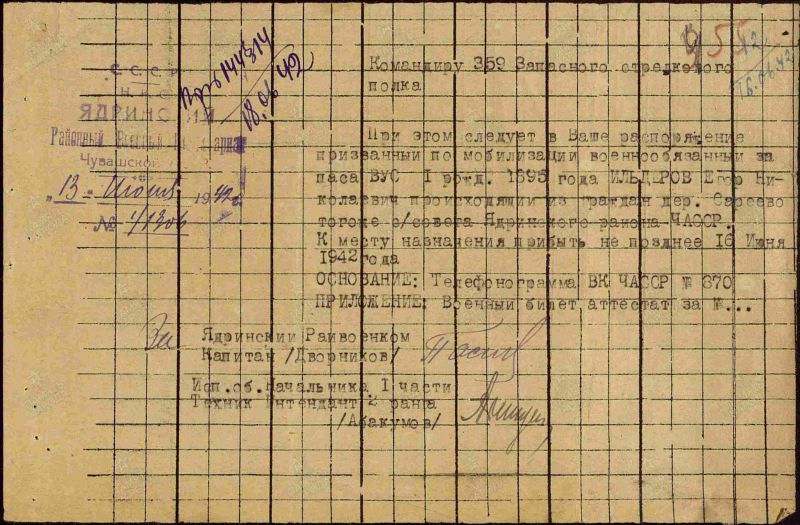 955
12/
16.06.42
Прб 144314
18.06.42
С.С.С.Р.
Н.К.О.
ЯДРИНСКИЙ
Районный Военный
Чувашской
"13" Июня 1942 г.
№ 1/1306
Командиру 359 Запасного стрелкового
полка
При этом следует в Ваше распоряжение
призванный по мобилизации военнообязанный за
паса ВУС I рожд. 1895 года ИЛЬДЕРОВ Егор Ни-
колаевич происходящий из граждан дер. Сареево
тогоже с/совета Ядринского района ЧАССР.
К месту назначения прибыть не позднее 16 Июня
1942 года
ОСНОВАНИЕ: Телефонограмма ВК ЧАССР № 870
ПРИЛОЖЕНИЕ: Военный билет аттестат за №...
За Ядринский Райвоенком
Капитан /Дворников/
Исп.об.Начальника 1 части
Техник Интендант 2 ранга
/Абакумов/